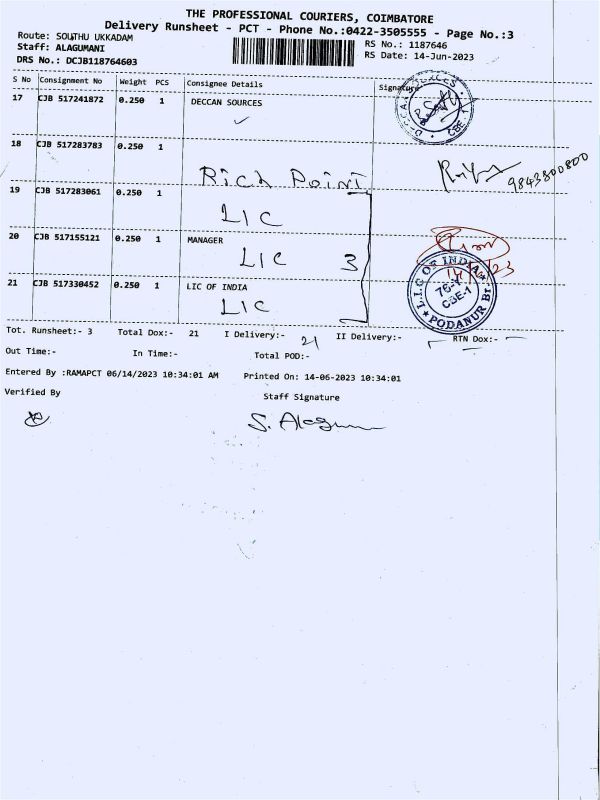 THE PROFESSIONAL COURIERS, COIMBATORE
Delivery Runsheet - PCT - Phone No.:0422-3505555 - Page No.:3
Route: SOUTHU UKKADAM
RS No.: 1187646
Staff: ALAGUMANI
RS Date: 14-Jun-2023
DRS No.: DCJB118764603
S No Consignment No Weight PCS Consignee Details Signature
17 CJB 517241872 0.250 1 DECCAN SOURCES
18 CJB 517283783 0.250 1
Rich Point
9843800800
19 CJB 517283061 0.250 1
LIC
20 CJB 517155121 0.250 1 MANAGER
LIC 3
L.I.C OF INDIA
CBE-1
PODANUR
21 CJB 517330452 0.250 1 LIC OF INDIA
LIC
Tot. Runsheet:- 3 Total Dox:- 21 I Delivery:- 21 II Delivery:- RTN Dox:-
Out Time:- In Time:- Total POD:-
Entered By :RAMAPCT 06/14/2023 10:34:01 AM Printed On: 14-06-2023 10:34:01
Verified By Staff Signature